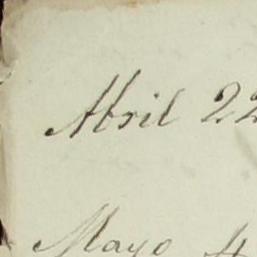 Abril 22
Mayo 4